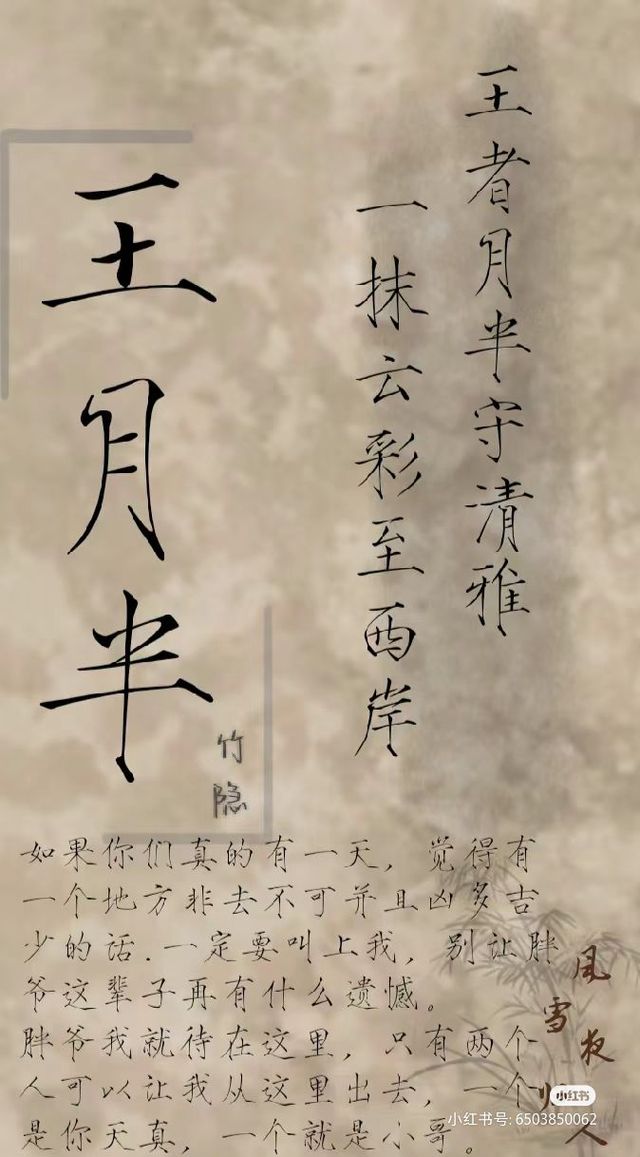 王者月半守清雅
一抹云彩至西岸
王月半
竹隐
如果你们真的有一天，觉得有
一个地方非去不可并且凶多吉
少的话.一定要叫上我，别让胖
爷这辈子再有什么遗憾。
胖爷我就待在这里，只有两个
人可以让我从这里出去，一个
是你天真，一个就是小哥。
风雪夜归人
小红书
小红书号: 6503850062